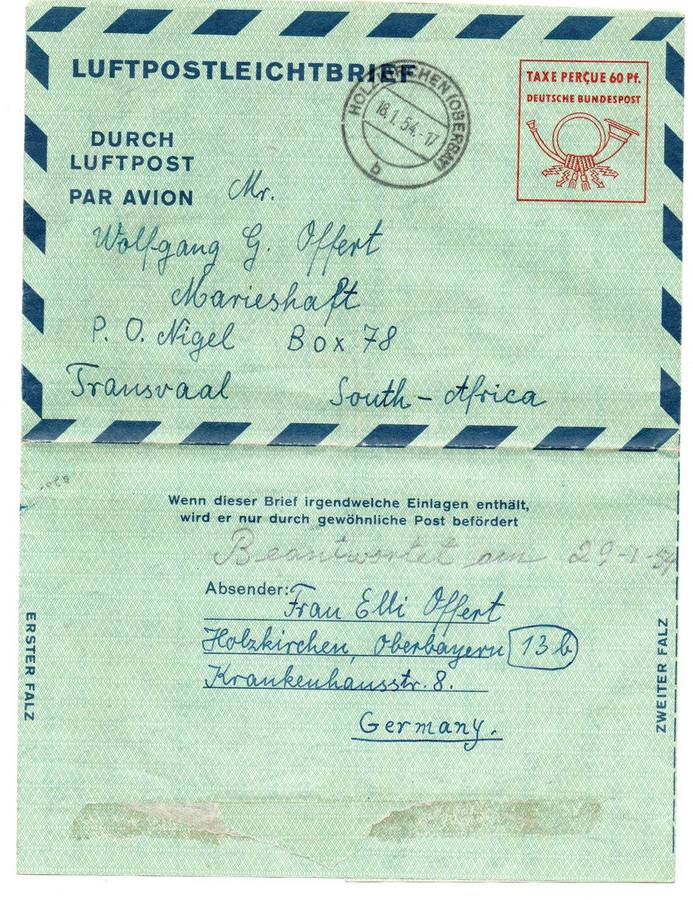 LUFTPOSTLEICHTBRIEF
TAXE PERÇUE 60 Pf.
DEUTSCHE BUNDESPOST
HOLZKIRCHEN (OBERBAY)
18.1.54.-17
b
DURCH
LUFTPOST
PAR AVION
Mr.
Wolfgang G. Offert
Marieshaft
P. O. Nigel Box 78
Transvaal South-Africa
Wenn dieser Brief irgendwelche Einlagen enthält,
wird er nur durch gewöhnliche Post befördert
Beantwortet am 29-1-54
Absender: Frau Elli Offert
Holzkirchen, Oberbayern 13b
Krankenhausstr. 8.
Germany.
ERSTER FALZ
ZWEITER FALZ